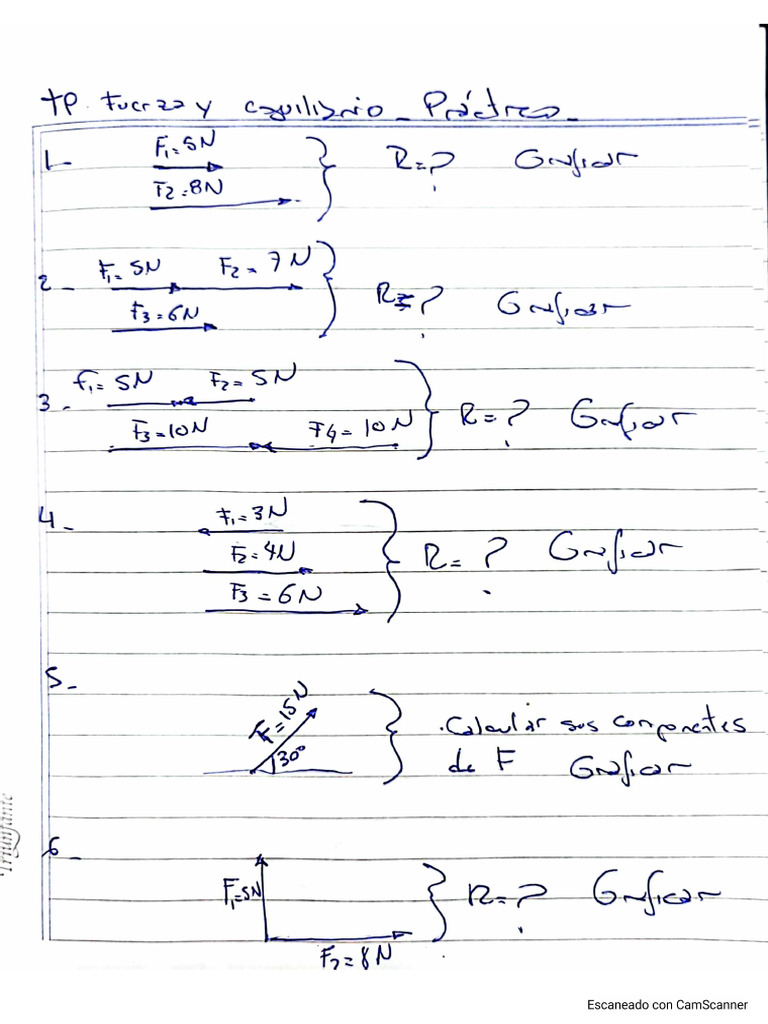 TP. Fuerza y equilibrio - Práctico -
1- F₁=5N
F₂=8N
R=? Graficar
2- F₁=5N F₂=7N
F₃=6N
R=? Graficar
3- F₁=5N F₂=5N
F₃=10N F4=10N
R=? Graficar
4- F₁=3N
F₂=4N
F₃=6N
R=? Graficar
5-
F=15N
30°
.Calcular sus componentes
de F Graficar
6-
F₁=5N
F₂=8N
R=? Graficar
Triunfante
Escaneado con CamScanner